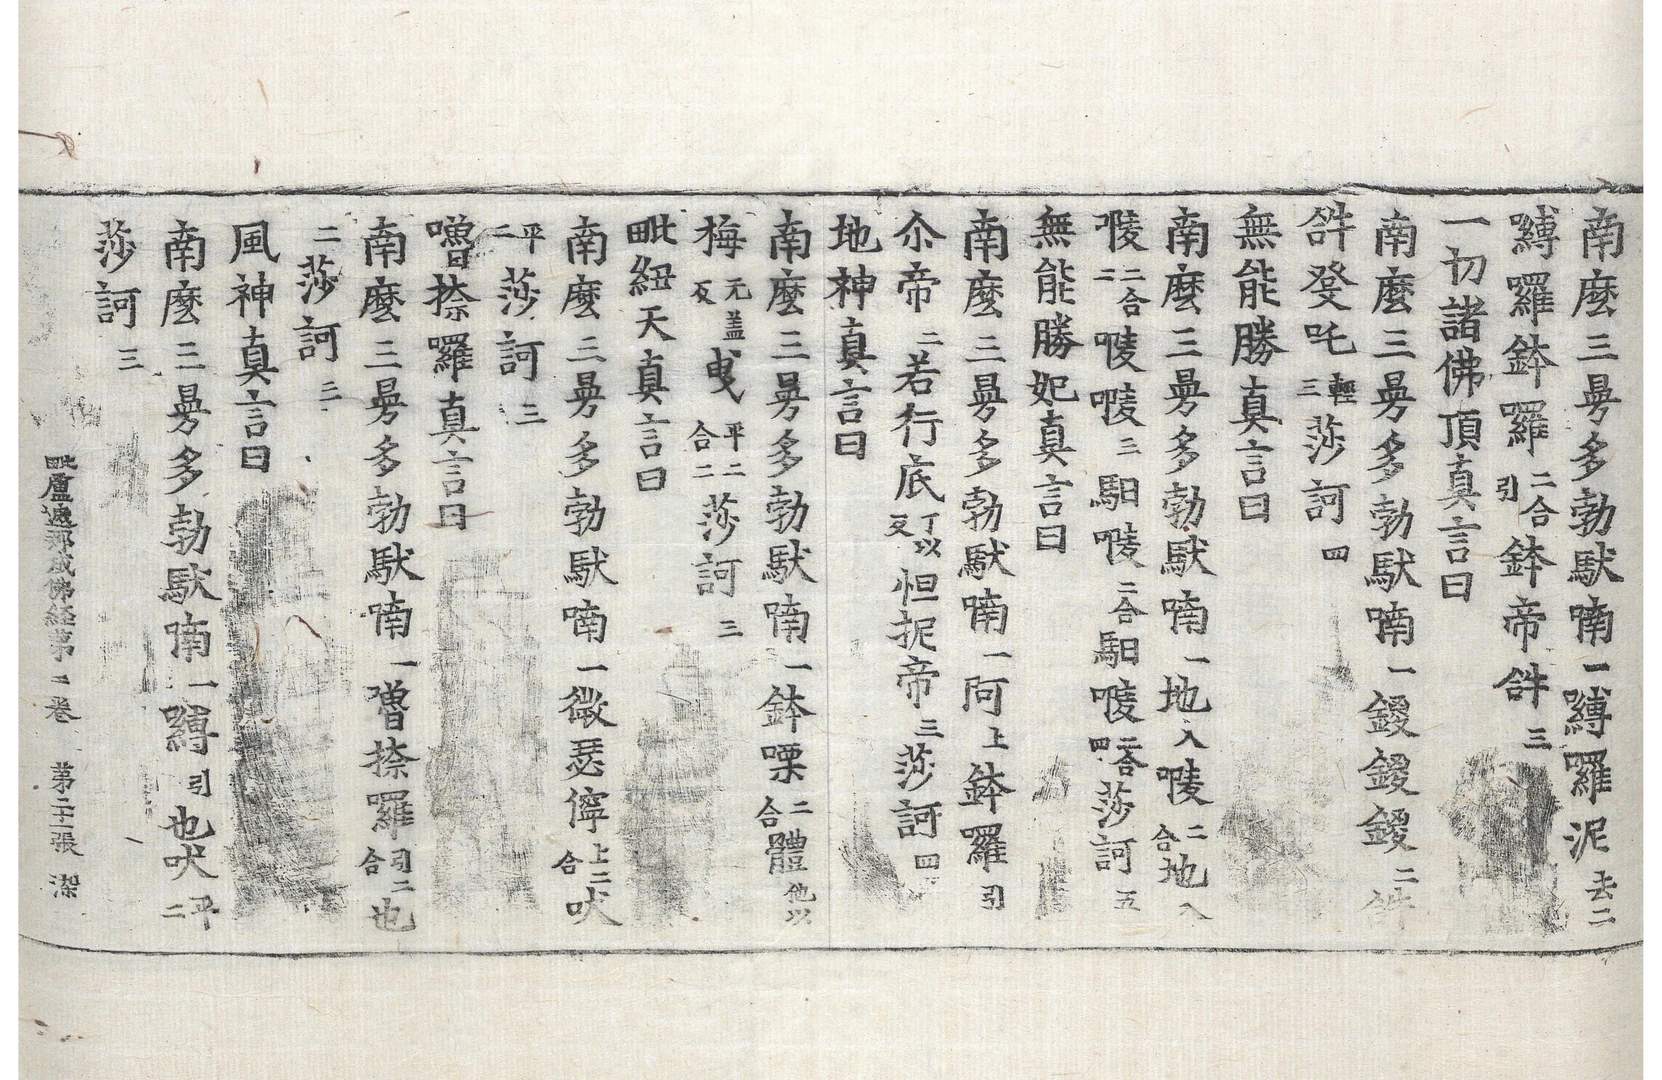 南麼三曼多勃馱喃一縛囉泥去二
縛囉鉢囉二合引鉢帝𤙖三
一切諸佛頂真言曰
南麼三曼多勃馱喃一鑁鑁鑁二𤙖
𤙖發吒輕三莎訶四
無能勝真言曰
南麼三曼多勃馱喃一地入㘑二合地入
㘑二合二㘑㘑三馹㘑二合馹㘑二合四莎訶五
無能勝妃真言曰
南麼三曼多勃馱喃一阿上鉢囉引
尒帝二若行底丁以反怛抳帝三莎訶四
地神真言曰
南麼三曼多勃馱喃一鉢㗚二合體他以
梅无盖反曳平二合二莎訶三
毗紐天真言曰
南麼三曼多勃馱喃一微瑟儜上二合吠
平二莎訶三
嚕捺囉真言曰
南麼三曼多勃馱喃一嚕捺囉引二合也
二莎訶三
風神真言曰
南麼三曼多勃馱喃一縛引也吠平二
莎訶三
毗盧遮那成佛経第二卷 第二十二張 㓗